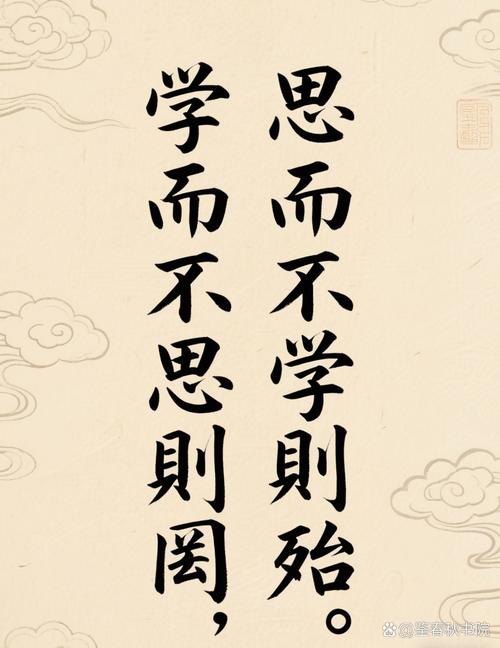 学而不思則罔，
思而不学則殆。
@鉴春秋书院